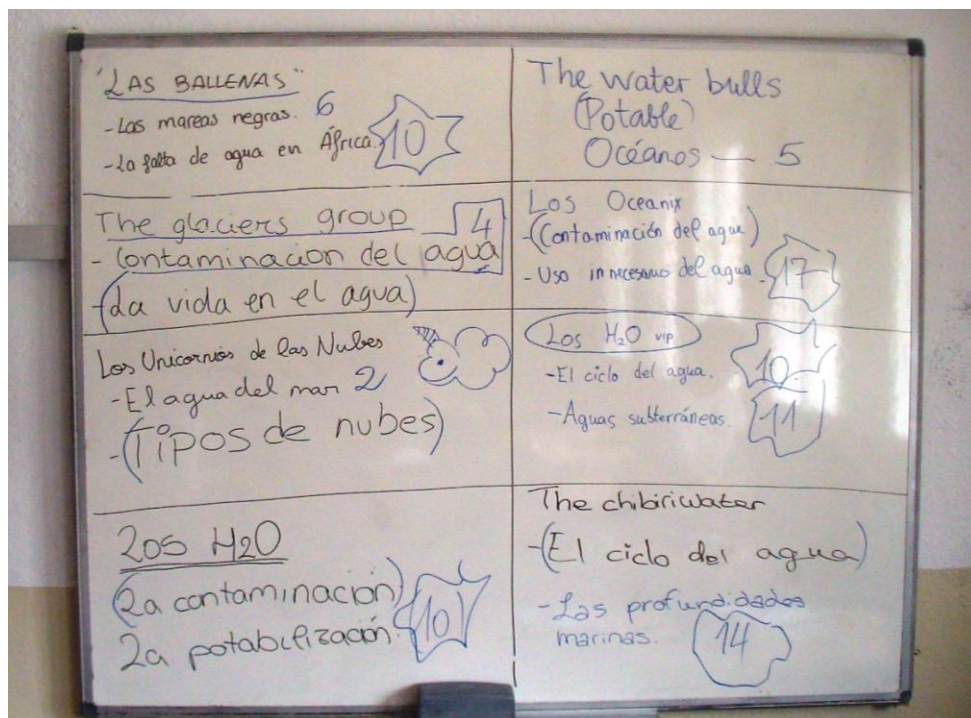 "LAS BALLENAS"
- Las mareas negras. 6
- La falta de agua en África. 10
The glaciers group 4
- Contaminación del agua
- (La vida en el agua)
Los Unicornios de las Nubes
- El agua del mar 2
- (Tipos de nubes)
Los H2O
(La contaminación)
La potabilización. 10
The water bulls
(Potable)
Océanos — 5
Los Oceanix
- (Contaminación del agua)
- Uso innecesario del agua. 17
Los H2O vip
- El ciclo del agua. 10
- Aguas subterráneas. 11
The chibiriwater
- (El ciclo del agua)
- Las profundidades
marinas. 14